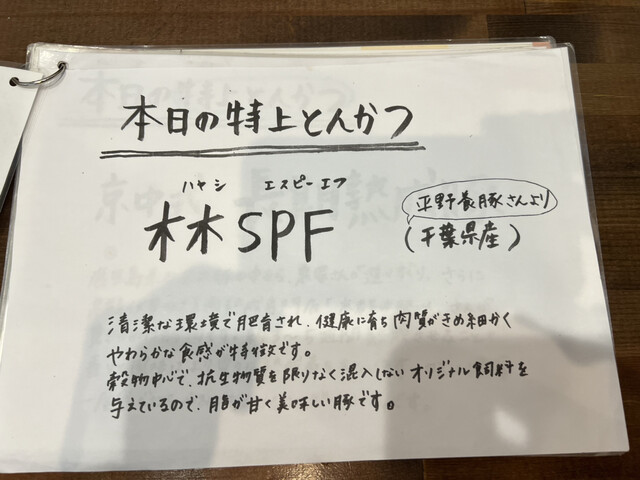 本日の特上とんかつ
ハヤシ エスピーエフ
林SPF
平野養豚さんより
(千葉県産)
清潔な環境で肥育され、健康に育ち肉質がきめ細かく
やわらかな食感が特徴です。
穀物中心で、抗生物質を限りなく混入しないオリジナル飼料を
与えているので、脂が甘く美味しい豚です。